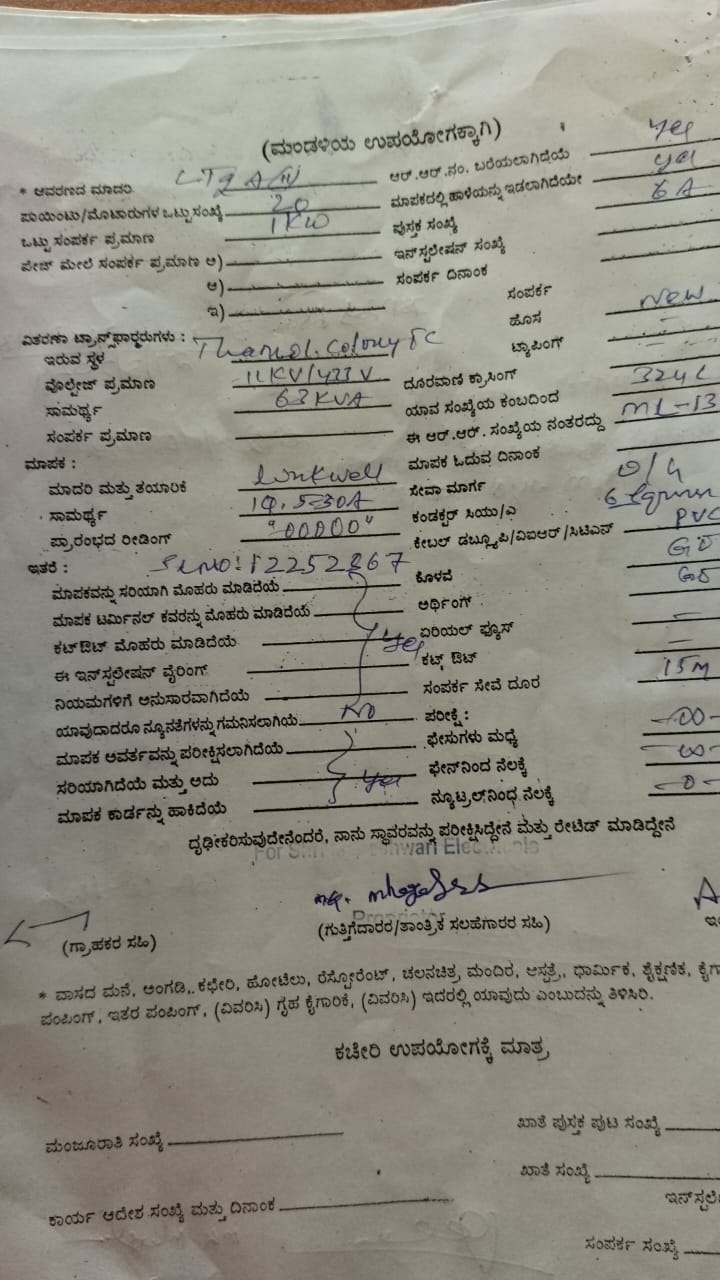 (ಮಂಡಳಿಯ ಉಪಯೋಗಕ್ಕಾಗಿ)
* ಆವರಣದ ಮಾದರಿ LT2A(ii) ಆರ್.ಆರ್.ನಂ. ಬರೆಯಲಾಗಿದೆಯೆ yes
ಪಾಯಿಂಟು/ಮೋಟಾರುಗಳ ಒಟ್ಟು ಸಂಖ್ಯೆ 20 ಮಾಪಕದಲ್ಲಿ ಹಾಳೆಯನ್ನು ಇಡಲಾಗಿದೆಯೇ yes
ಒಟ್ಟು ಸಂಪರ್ಕ ಪ್ರಮಾಣ 1KW ಪುಸ್ತಕ ಸಂಖ್ಯೆ 6A
ಪೇಜ್ ಮೇಲೆ ಸಂಪರ್ಕ ಪ್ರಮಾಣ ಅ) ಇನ್‌ಸ್ಟಲೇಷನ್ ಸಂಖ್ಯೆ
ಆ) ಸಂಪರ್ಕ ದಿನಾಂಕ
ಇ) ಸಂಪರ್ಕ
ವಿತರಣಾ ಟ್ರಾನ್ಸ್‌ಫಾರ್ಮರುಗಳು : ಹೊಸ New
ಇರುವ ಸ್ಥಳ Colony TC ಟ್ಯಾಪಿಂಗ್ -
ವೋಲ್ಟೇಜ್ ಪ್ರಮಾಣ 11KV/433V ದೂರವಾಣಿ ಕ್ರಾಸಿಂಗ್ -
ಸಾಮರ್ಥ್ಯ 63KVA ಯಾವ ಸಂಖ್ಯೆಯ ಕಂಬದಿಂದ
ಸಂಪರ್ಕ ಪ್ರಮಾಣ ಈ ಆರ್.ಆರ್. ಸಂಖ್ಯೆಯ ನಂತರದ್ದು ML-13
ಮಾಪಕ : ಮಾಪಕ ಓದುವ ದಿನಾಂಕ
ಮಾದರಿ ಮತ್ತು ತಯಾರಿಕೆ Linkwell ಸೇವಾ ಮಾರ್ಗ O/H
ಸಾಮರ್ಥ್ಯ 1Φ, 5-30A ಕಂಡಕ್ಟರ್ ಸಿಯು/ಎ 6 Sqmm
ಪ್ರಾರಂಭದ ರೀಡಿಂಗ್ "00000" ಕೇಬಲ್ ಡಬ್ಲ್ಯೂಪಿ/ವಿಐಆರ್/ಸಿಟಿಎನ್ PVC
ಇತರೆ : Sl no: 12252867 ಕೊಳವೆ GI
ಮಾಪಕವನ್ನು ಸರಿಯಾಗಿ ಮೊಹರು ಮಾಡಿದೆಯೆ ಅರ್ಥಿಂಗ್ GI
ಮಾಪಕ ಟರ್ಮಿನಲ್ ಕವರನ್ನು ಮೊಹರು ಮಾಡಿದೆಯೆ ಏರಿಯಲ್ ಫ್ಯೂಸ್ -
ಕಟ್‌ಔಟ್ ಮೊಹರು ಮಾಡಿದೆಯೆ yes ಕಟ್ಸ್ ಔಟ್ -
ಈ ಇನ್‌ಸ್ಟಲೇಷನ್ ವೈರಿಂಗ್
ನಿಯಮಗಳಿಗೆ ಅನುಸಾರವಾಗಿದೆಯೆ ಸಂಪರ್ಕ ಸೇವೆ ದೂರ 15M
ಯಾವುದಾದರೂ ನ್ಯೂನತೆಗಳನ್ನು ಗಮನಿಸಲಾಗಿಯೆ No ಪರೀಕ್ಷೆ :
ಮಾಪಕ ಆವರ್ತವನ್ನು ಪರೀಕ್ಷಿಸಲಾಗಿದೆಯೆ ಫೇಸುಗಳು ಮಧ್ಯೆ -00-
ಸರಿಯಾಗಿದೆಯೆ ಮತ್ತು ಅದು yes ಫೇನ್‌ನಿಂದ ನೆಲಕ್ಕೆ -00-
ಮಾಪಕ ಕಾರ್ಡನ್ನು ಹಾಕಿದೆಯೆ ನ್ಯೂಟ್ರಲ್‌ನಿಂಧ ನೆಲಕ್ಕೆ -0-
ದೃಢೀಕರಿಸುವುದೇನೆಂದರೆ, ನಾನು ಸ್ಥಾವರವನ್ನು ಪರೀಕ್ಷಿಸಿದ್ದೇನೆ ಮತ್ತು ರೇಟೆಡ್ ಮಾಡಿದ್ದೇನೆ
Proprietor
(ಗ್ರಾಹಕರ ಸಹಿ) (ಗುತ್ತಿಗೆದಾರರ/ತಾಂತ್ರಿಕ ಸಲಹೆಗಾರರ ಸಹಿ)
* ವಾಸದ ಮನೆ, ಅಂಗಡಿ, ಕಛೇರಿ, ಹೋಟೆಲು, ರೆಸ್ಟೋರೆಂಟ್, ಚಲನಚಿತ್ರ ಮಂದಿರ, ಆಸ್ಪತ್ರೆ, ಧಾರ್ಮಿಕ, ಶೈಕ್ಷಣಿಕ,
ಪಂಪಿಂಗ್, ಇತರ ಪಂಪಿಂಗ್, (ವಿವರಿಸಿ) ಗೃಹ ಕೈಗಾರಿಕೆ, (ವಿವರಿಸಿ) ಇದರಲ್ಲಿ ಯಾವುದು ಎಂಬುದನ್ನು ತಿಳಿಸಿರಿ.
ಕಚೇರಿ ಉಪಯೋಗಕ್ಕೆ ಮಾತ್ರ
ಮಂಜೂರಾತಿ ಸಂಖ್ಯೆ ಖಾತೆ ಪುಸ್ತಕ ಪುಟ ಸಂಖ್ಯೆ
ಖಾತೆ ಸಂಖ್ಯೆ
ಕಾರ್ಯ ಆದೇಶ ಸಂಖ್ಯೆ ಮತ್ತು ದಿನಾಂಕ
ಸಂಪರ್ಕ ಸಂಖ್ಯೆ